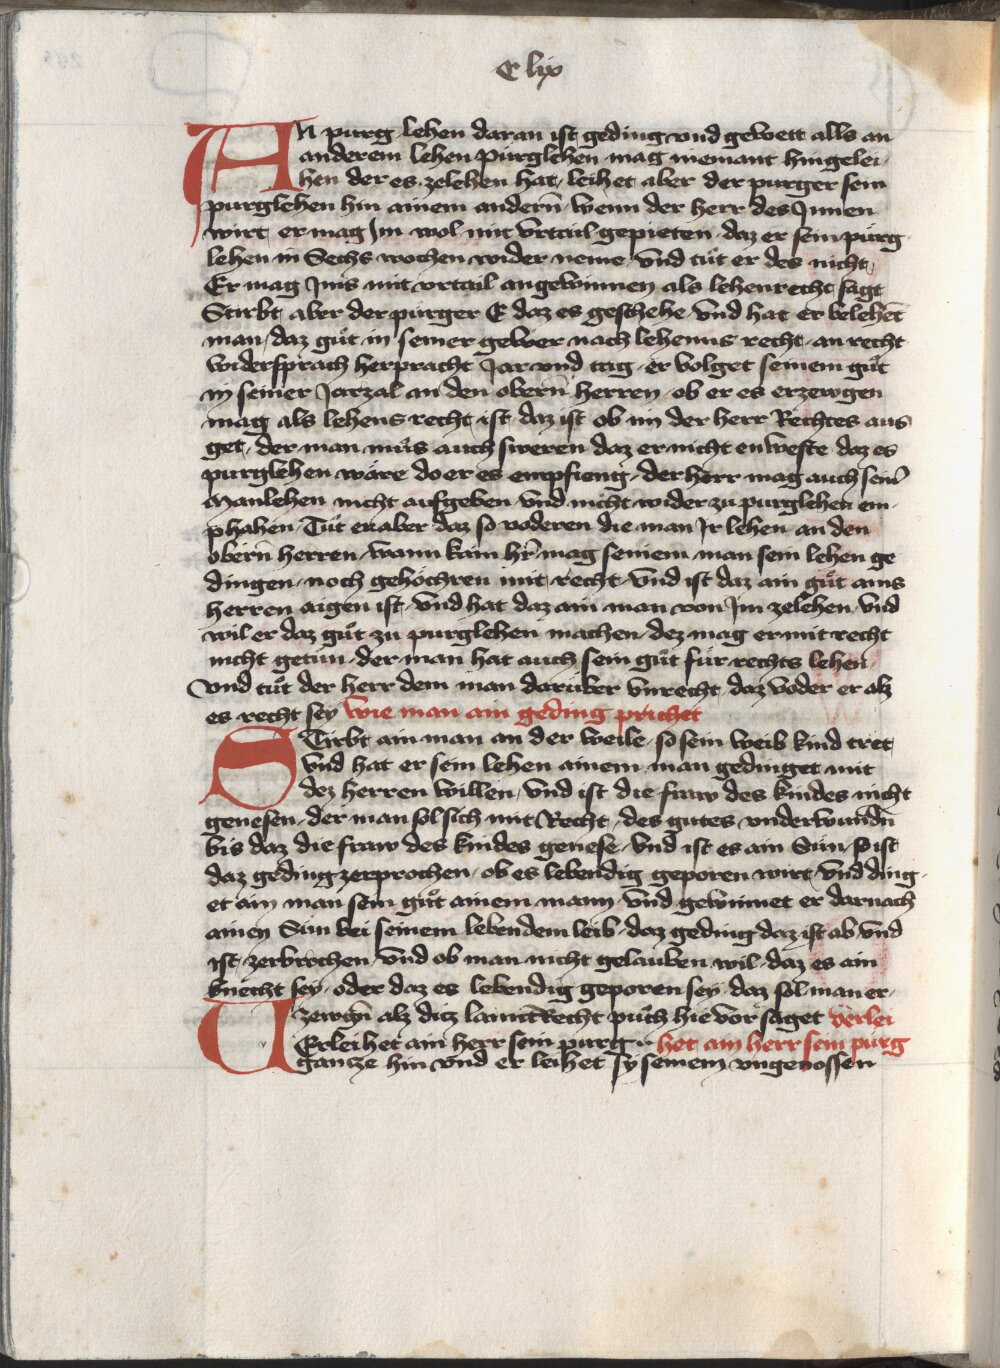 C lix
AN purg lehen daran ist geding vnd gewett alls an
anderem lehen Purglehen mag niemant hingelei-
hen der es zelehen hat, leihet aber der purger sein
purglehen hin ainem andern̄ wenn der herr des Innen
wirt er mag Im wol mit vrtail gepieten daz er sein purg
lehen in Sechs wochen wider neme vnd tuͦt er des nicht
Er mag Ims mit vrtail angewinnen als lehenrecht sagt
Stirbt aber der purger E daz es geschehe vnd hat er belehēt
man, daz guͦt in seiner gewer nach lehenns recht an recht
widersprach herpracht Jar vnd tag er volget seinem guͦt
in seiner Jarzal an den obern̄ herren ob er es erzewgen
mag als lehens recht ist daz ist ob im der herr Rechtes aus
get, der man muͦs auch sweren daz er nicht enweste daz es
purglehen wäre do er es empfieng, der herr mag auch sein̄
Manlehen nicht aufgeben vnd nicht wider zu purglehen em-
phahen Tuͦt er aber daz so voderen die man Jr lehen an den
obern̄ herren, wann kain hr̄ mag seinem man sein lehen ge
dingen noch gehöchren mit recht vnd ist daz ain guͦt ains
herren aigen ist, vnd hat daz ain man von Im zelehen vnd
wil er daz guͦt zu purglehen machen, dez mag er mit recht
nicht getun, der man hat auch sein guͦt für rechts lehen
vnd tuͦt der herr dem man daruber vnrecht daz voder er alz
es recht sey Wie man ain geding prichet
STirbt ain man an der weile so sein weib kind tret
vnd hat er sein lehen ainem man gedinget mit
dez herren willen, vnd ist die fraw des kindes nicht
genesen, der man sol sich mit Recht des gutes vnderwindn̄
bis daz die fraw des kindes genese, vnd ist es ain Sun, So ist
daz geding zerprochen, ob es lebendig geporen wirt vnd ding-
et ain man sein guͦt ainem mann vnd gewinnet er darnach
ainen Sun bei seinem lebendem leib daz geding daz ist ab vnd
ist zerbrochen, vnd ob man nicht gelauben wil, daz es ain
knecht sey, oder daz es lebendig geporen sey, daz sol man er-
zewgn̄ alz ditz lanntRecht puͦch hie vor saget Verlei
VErleihet ain herr sein purg het ain herr sein purg
gantze hin vnd er leihet sy seinem vngenossen